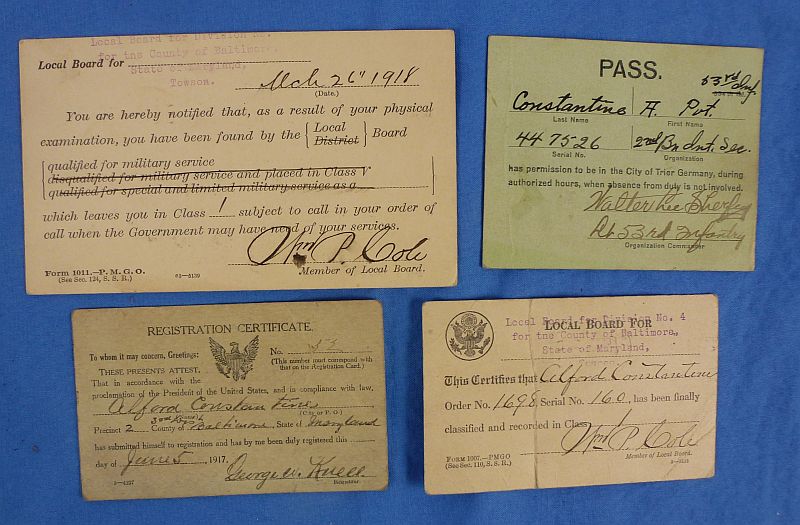 Local Board for Division No.
for the County of Baltimore,
State of Maryland,
Towson.
Local Board for
Mch 26" 1918
(Date.)
You are hereby notified that, as a result of your physical
examination, you have been found by the { Local District } Board
qualified for military service
disqualified for military service and placed in Class V
qualified for special and limited military service as a
which leaves you in Class 1 subject to call in your order of
call when the Government may have need of your services.
Wm P. Cole
Member of Local Board.
Form 1011.—P.M.G.O.
(See Sec. 124, S. S. R.)
c3—5139
PASS.
53rd Inf.
Constantine A. Pvt.
Last Name First Name
447526 2nd Bn Int. Sec.
Serial No. Organization
has permission to be in the City of Trier Germany, during
authorized hours, when absence from duty is not involved.
Walter Lee Sherfey
53rd Infantry
Organization Commander
REGISTRATION CERTIFICATE.
To whom it may concern, Greetings: No. 53
(This number must correspond with
that on the Registration Card.)
THESE PRESENTS ATTEST,
That in accordance with the
proclamation of the President of the United States, and in compliance with law,
Alford Constantine
(City or P. O.)
Precinct 2 County of Baltimore, State of Maryland
has submitted himself to registration and has by me been duly registered this
day of June 5, 1917.
George W. Knell
Registrar.
3—4327
Local Board for Division No. 4
for the County of Baltimore,
State of Maryland,
LOCAL BOARD FOR
This Certifies that Alford Constantine
Order No. 1698 Serial No. 160, has been finally
classified and recorded in Class 1
Wm P. Cole
Member of Local Board.
FORM 1007.—PMGO
(See Sec. 110, S. S. R.)